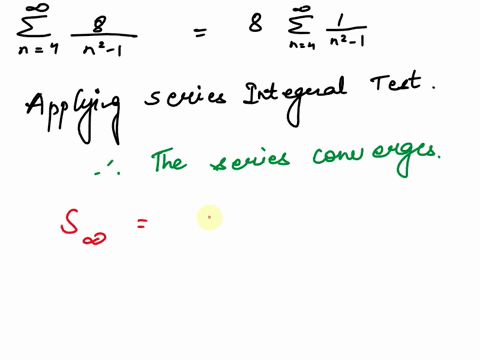 ∞∑n=4 8/(n²-1) = 8 ∞∑n=4 1/(n²-1)
Applying series Integral Test.
∴ The series converges.
S∞ =